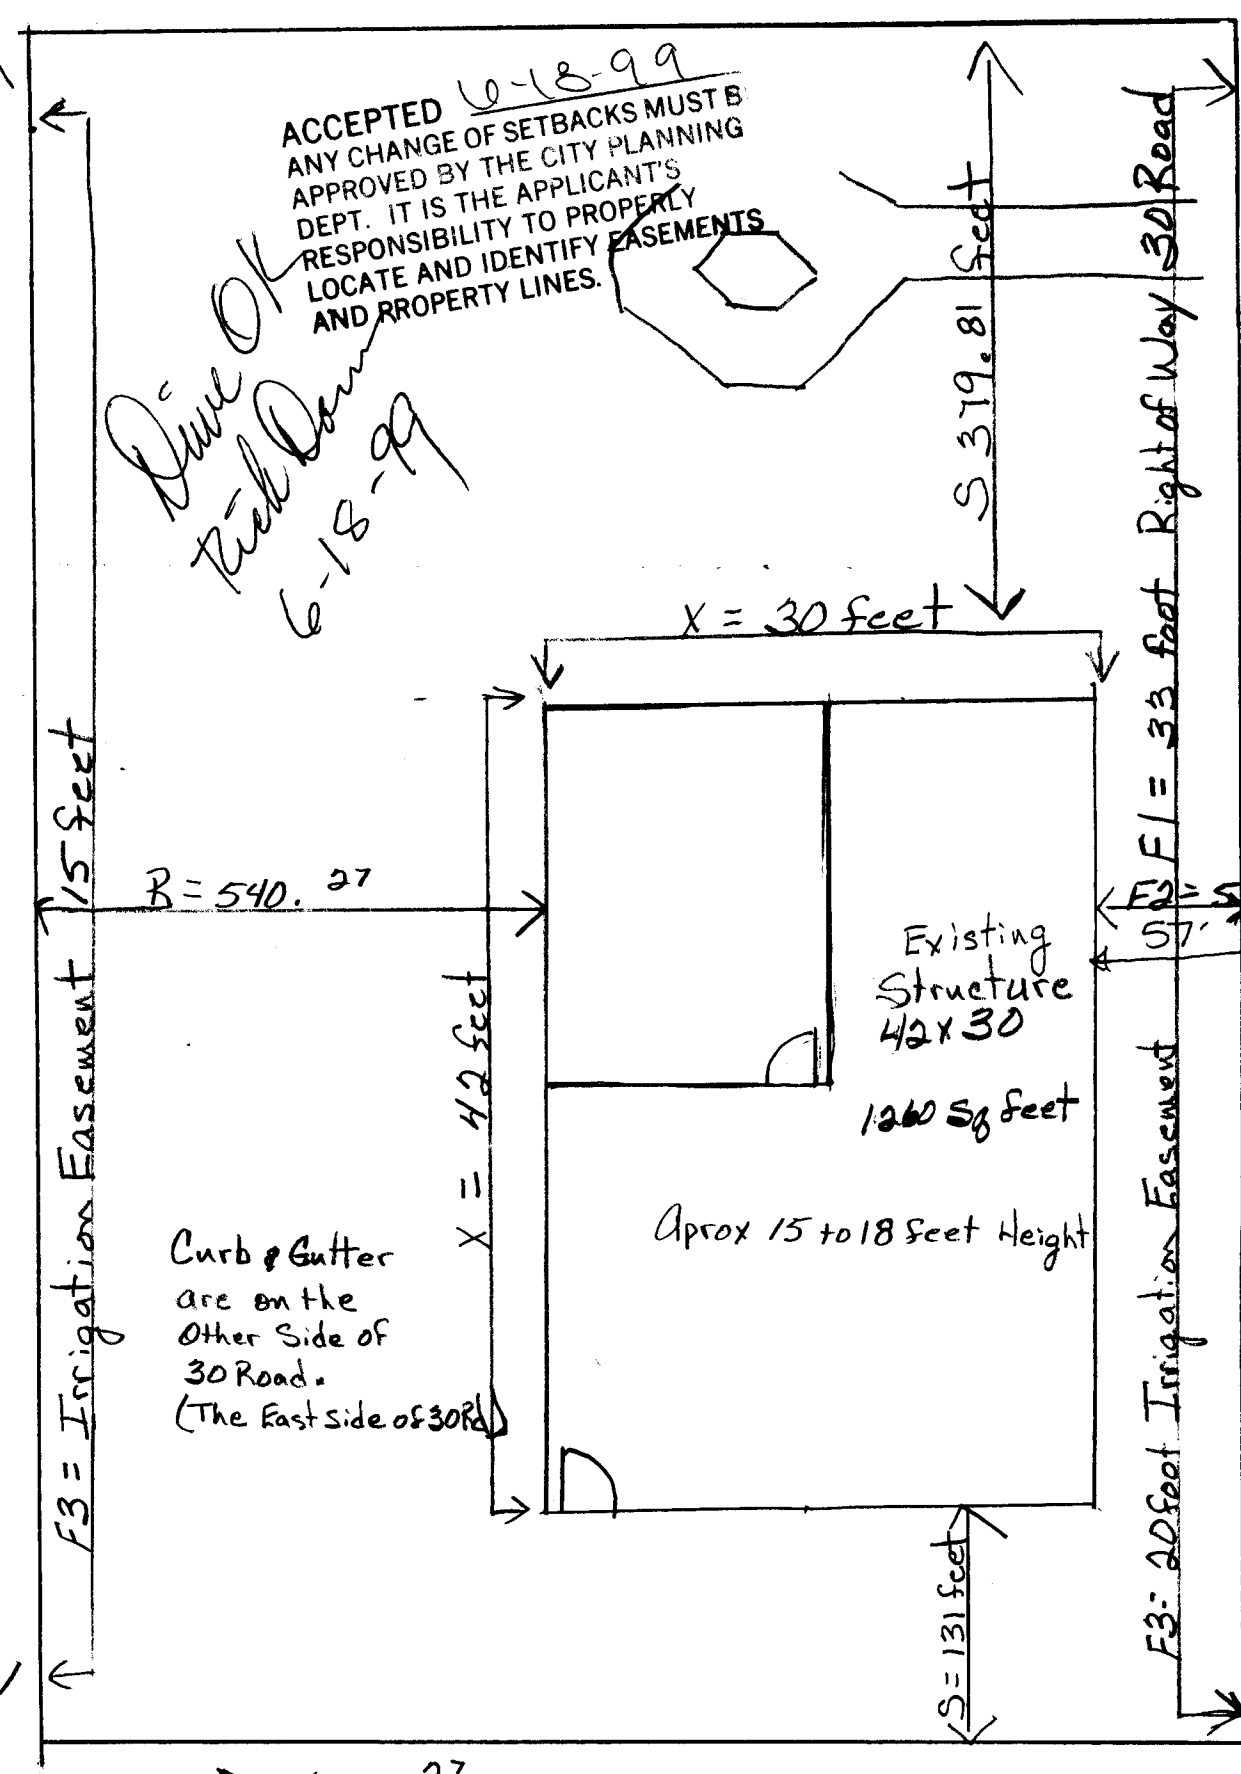 ACCEPTED 6-18-99
ANY CHANGE OF SETBACKS MUST B
APPROVED BY THE CITY PLANNING
DEPT. IT IS THE APPLICANT'S
RESPONSIBILITY TO PROPERLY
LOCATE AND IDENTIFY EASEMENTS
AND RROPERTY LINES.
OK
Rick
6-18-99
S 379.81 feet
F1 = 33 foot Right of Way 30 Road
X = 30 feet
F3 = Irrigation Easement 15 feet
R = 540.27
X = 42 feet
F2 = 5
57'
Existing
Structure
42 x 30
1260 Sq feet
Aprox 15 to 18 feet Height
Curb & Gutter
are on the
Other Side of
30 Road.
(The East side of 30 Rd)
F3 = 20 foot Irrigation Easement
S = 131 feet
27